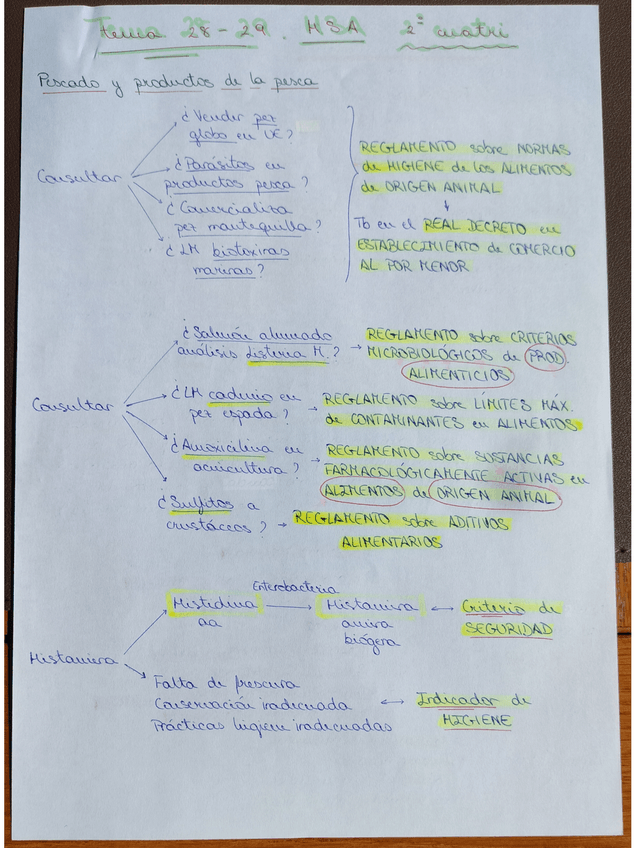 Tema 28-29. HSA 2º cuatri
Pescado y productos de la pesca
Consultar
¿Vender pez
globo en UE?
¿Parásitos en
productos pesca?
¿Comercializa
pez mantequilla?
¿LM biotoxinas
marinas?
REGLAMENTO sobre NORMAS
de HIGIENE de los ALIMENTOS
de ORIGEN ANIMAL
Tb en el REAL DECRETO en
ESTABLECIMIENTO de COMERCIO
AL POR MENOR
Consultar
¿Salmón ahumado
análisis Listeria M.?
REGLAMENTO sobre CRITERIOS
MICROBIOLÓGICOS de PROD.
ALIMENTICIOS
¿LM cadmio en
pez espada?
REGLAMENTO sobre LÍMITES MÁX.
de CONTAMINANTES en ALIMENTOS
¿Amoxicilina en
acuicultura?
REGLAMENTO sobre SUSTANCIAS
FARMACOLÓGICAMENTE ACTIVAS en
ALIMENTOS de ORIGEN ANIMAL
¿Sulfitos a
crustáceos?
REGLAMENTO sobre ADITIVOS
ALIMENTARIOS
Histamina
Histidina
aa
Enterobacteria
Histamina
amina
biógena
Criterio de
SEGURIDAD
Falta de frescura
Conservación inadecuada
Prácticas higiene inadecuadas
Indicador de
HIGIENE